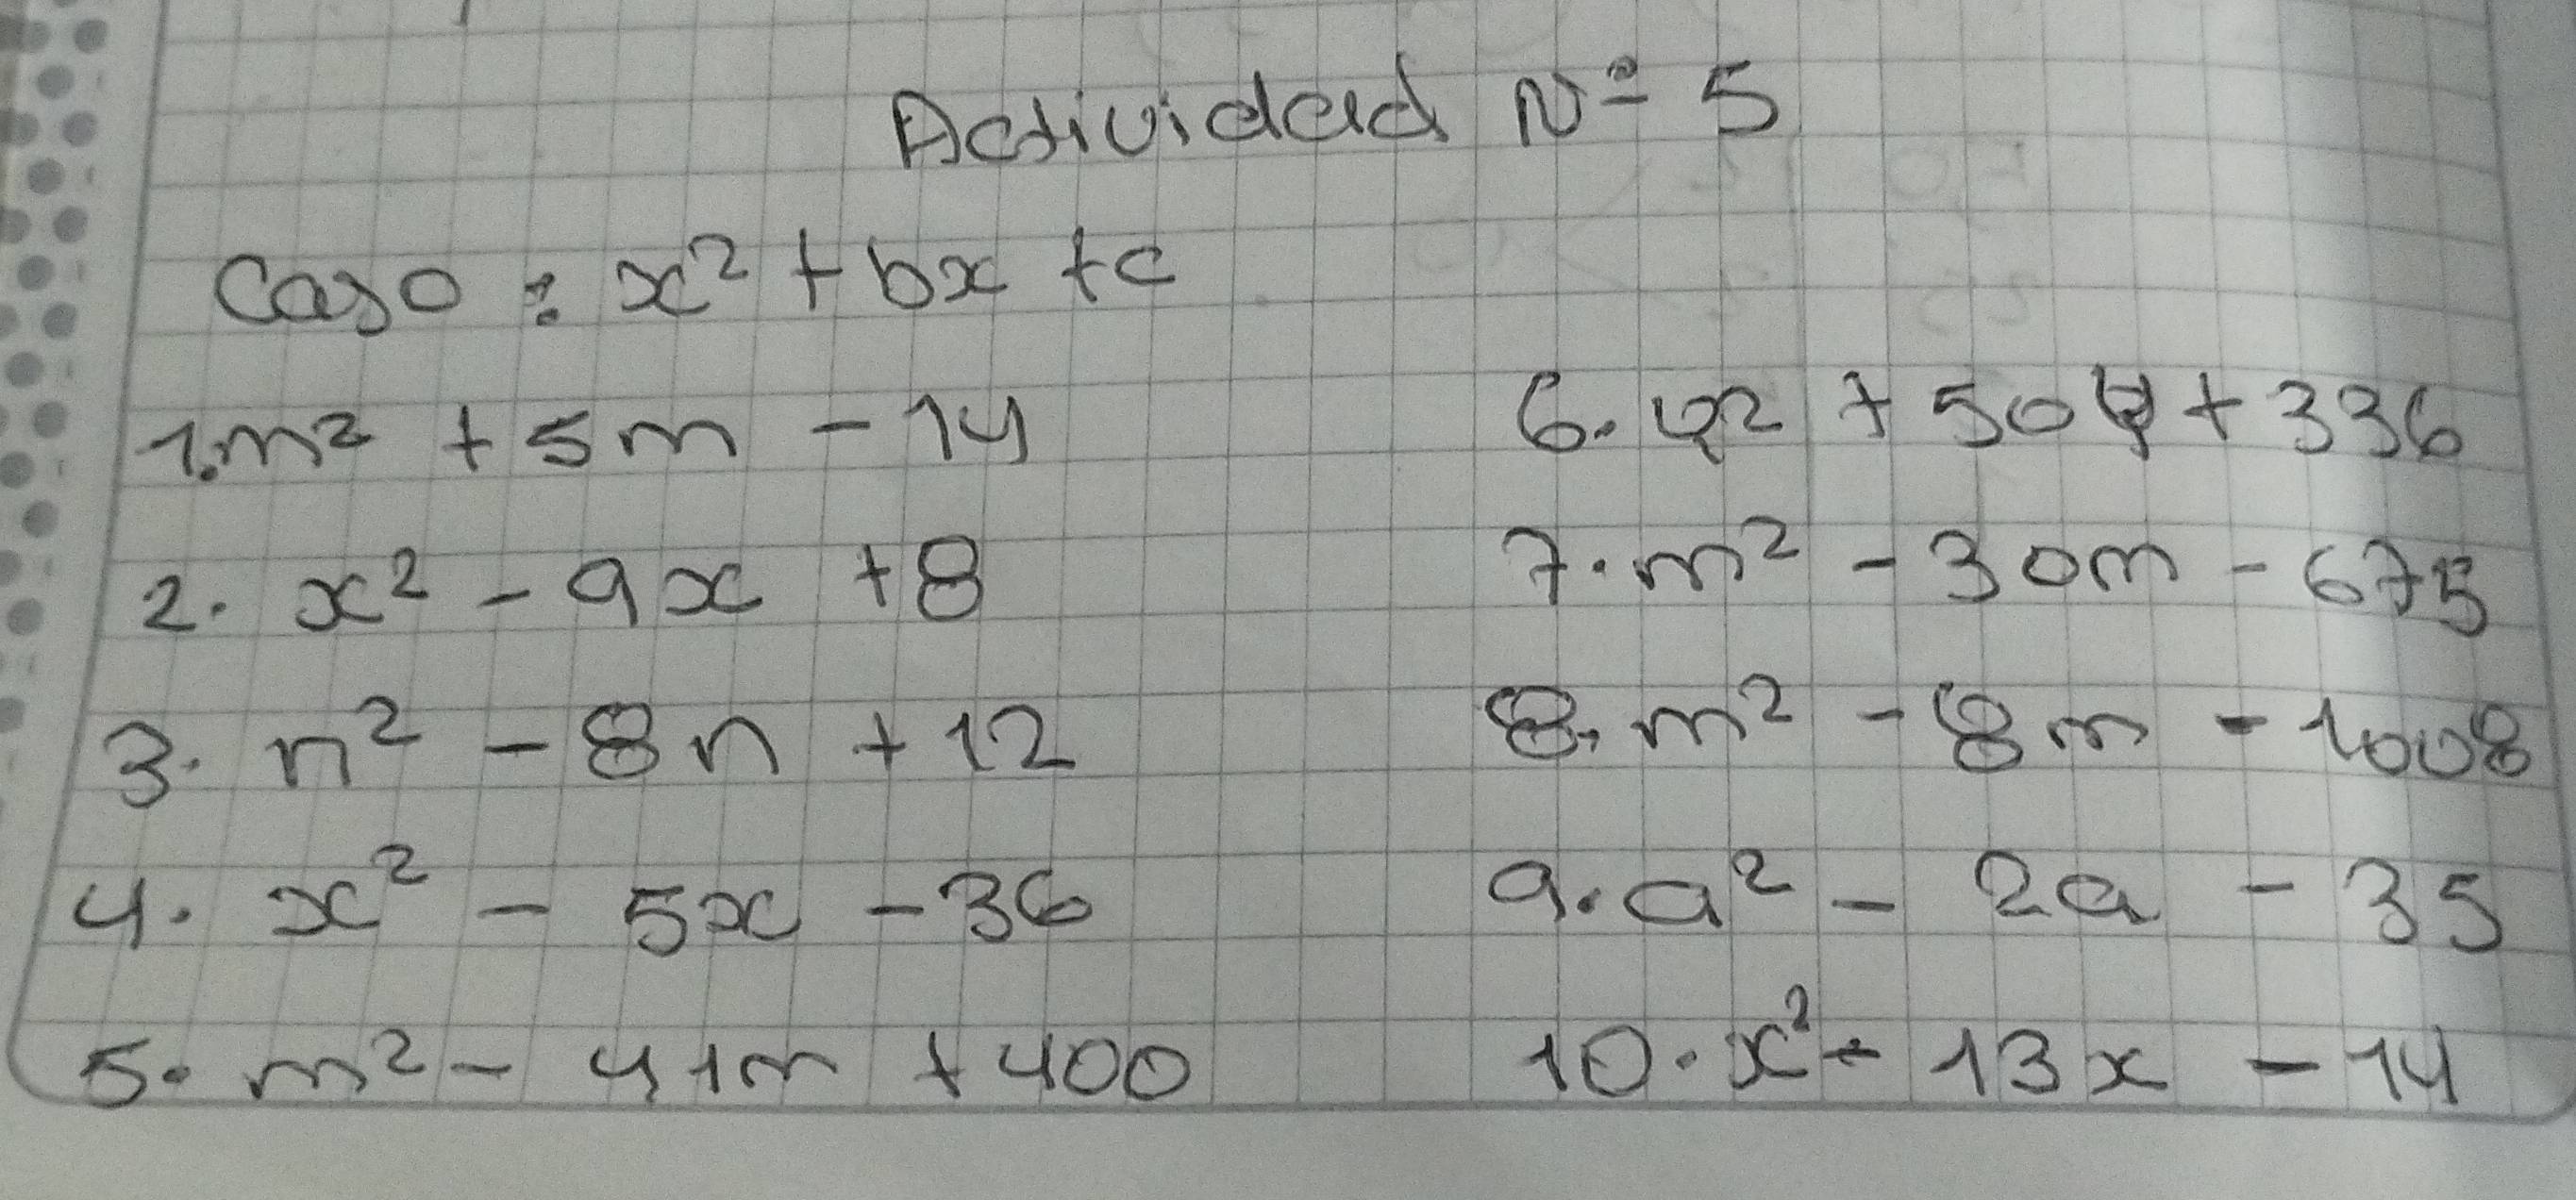 Actividad Nº 5
Caso : x² + bx + c
1. m² + 5m - 14
2. x² - 9x + 8
3. n² - 8n + 12
4. x² - 5x - 36
5. m² - 41m + 400
6. y² + 50y + 336
7. m² - 30m - 675
8. m² - 8m - 1008
9. a² - 2a - 35
10. x² - 13x - 14